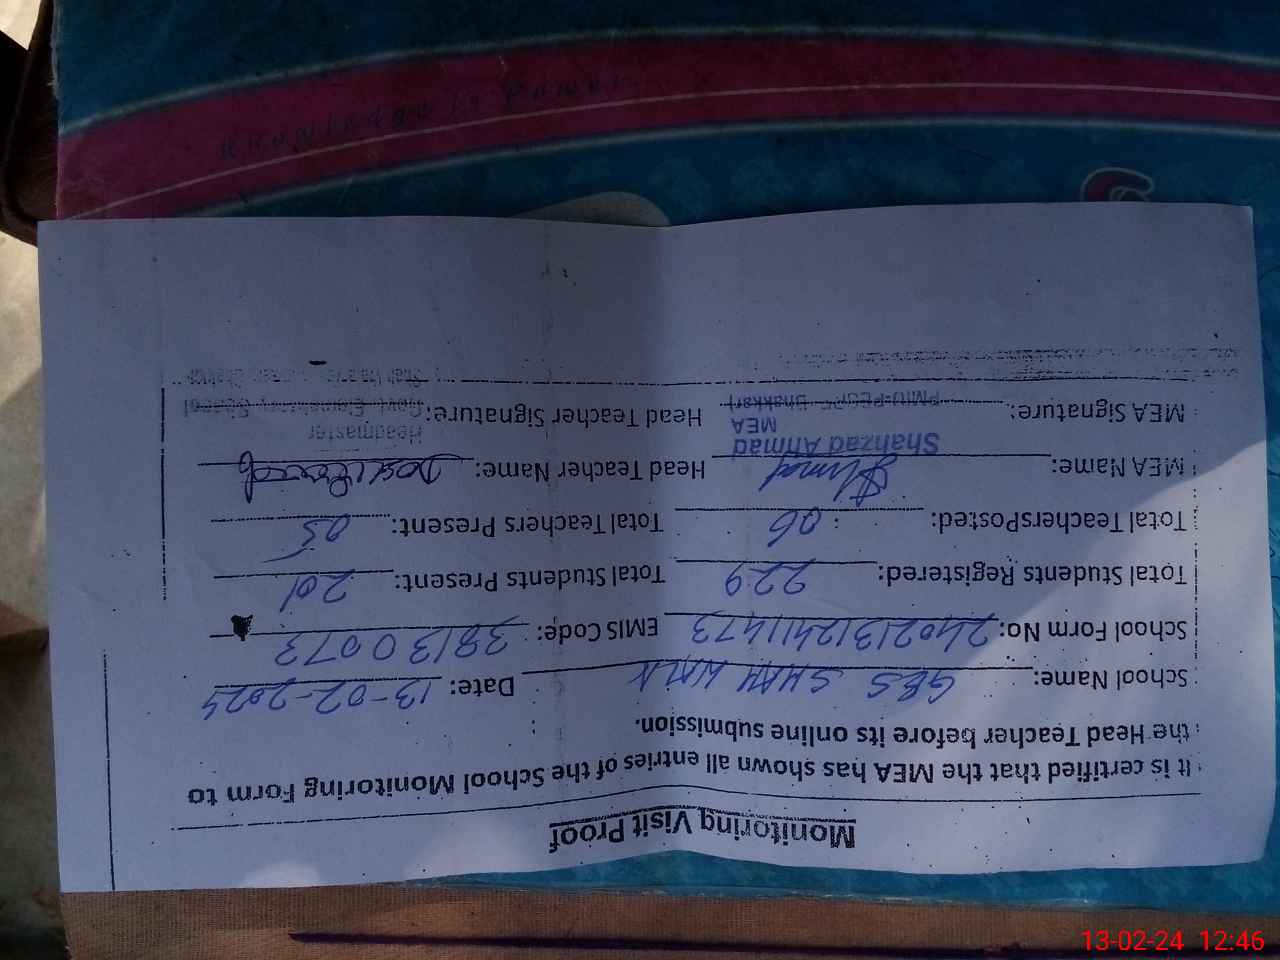 Monitoring Visit Proof
It is certified that the MEA has shown all entries of the School Monitoring Form to
the Head Teacher before its online submission.
School Name: GES SHAH WALA Date: 13-02-2024
School Form No: 24021312411473 EMIS Code: 38130073
Total Students Registered: 229 Total Students Present: 201
Total TeachersPosted: 06 Total Teachers Present: 05
MEA Name: Ahmad Head Teacher Name:
Shahzad Ahmad
MEA
Headmaster
MEA Signature: PMIU-PESRP Bhakkar) Head Teacher Signature: Govt. Elementary School
13-02-24 12:46